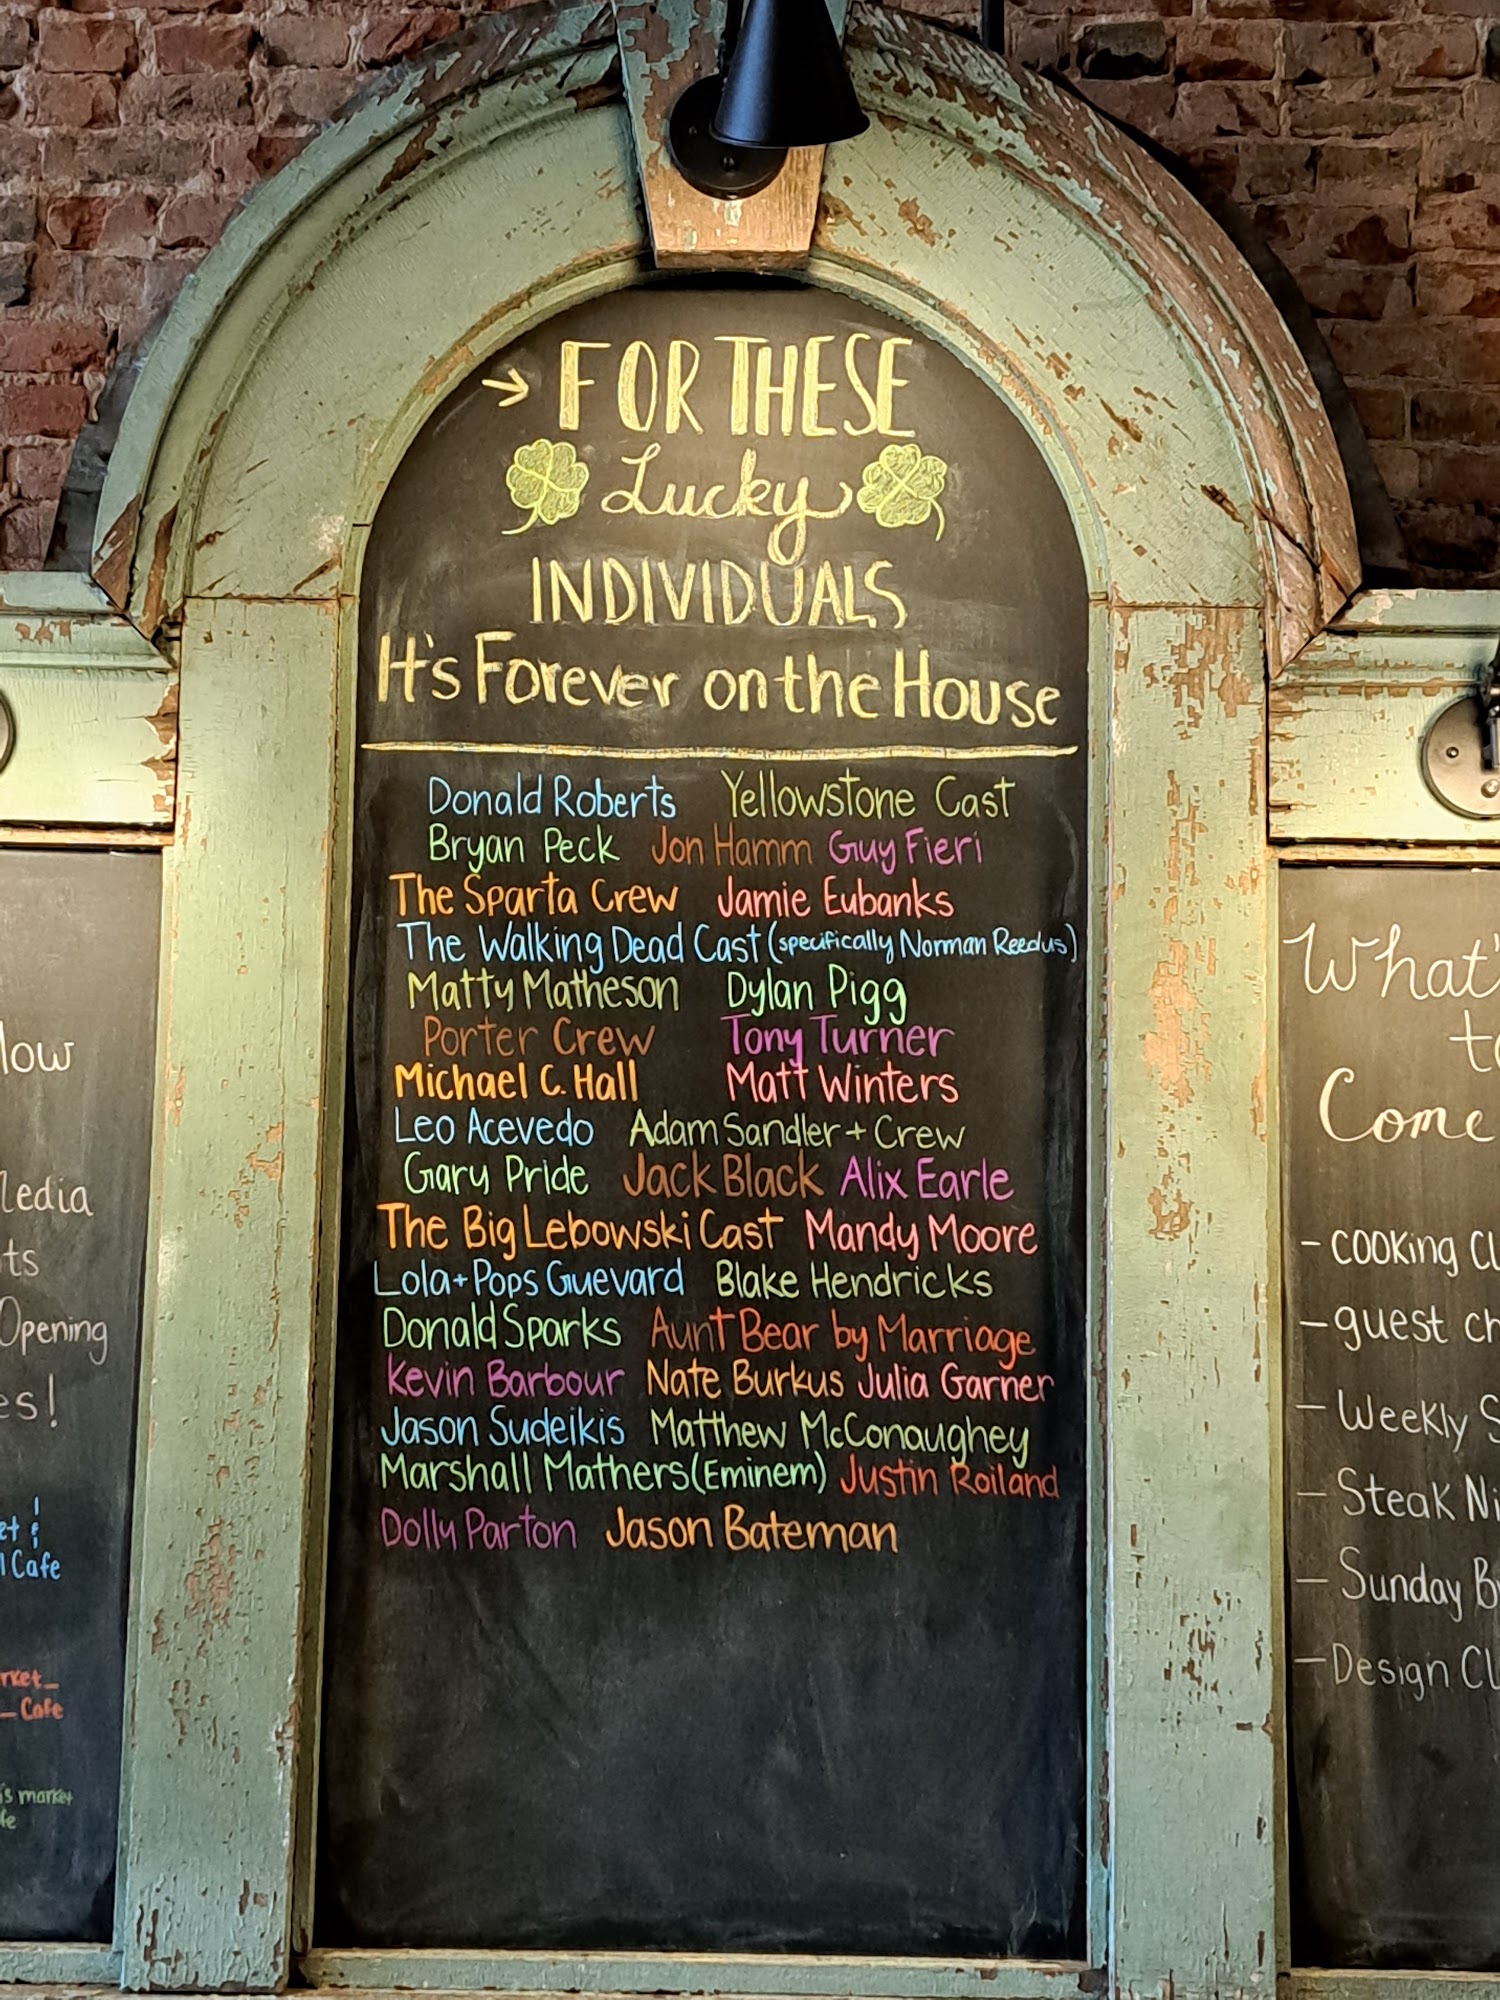 → FOR THESE
Lucky
INDIVIDUALS
It's Forever on the House
Donald Roberts Yellowstone Cast
Bryan Peck Jon Hamm Guy Fieri
The Sparta Crew Jamie Eubanks
The Walking Dead Cast (specifically Norman Reedus)
Matty Matheson Dylan Pigg
Porter Crew Tony Turner
Michael C. Hall Matt Winters
Leo Acevedo Adam Sandler + Crew
Gary Pride Jack Black Alix Earle
The Big Lebowski Cast Mandy Moore
Lola + Pops Guevard Blake Hendricks
Donald Sparks Aunt Bear by Marriage
Kevin Barbour Nate Burkus Julia Garner
Jason Sudeikis Matthew McConaughey
Marshall Mathers (Eminem) Justin Roiland
Dolly Parton Jason Bateman
low
ledia
ts
Opening
es!
et
l Cafe
rket_
_Cafe
's market
fe
What'
to
Come
- cooking Cl
- guest ch
- Weekly S
- Steak Ni
- Sunday B
- Design Cl